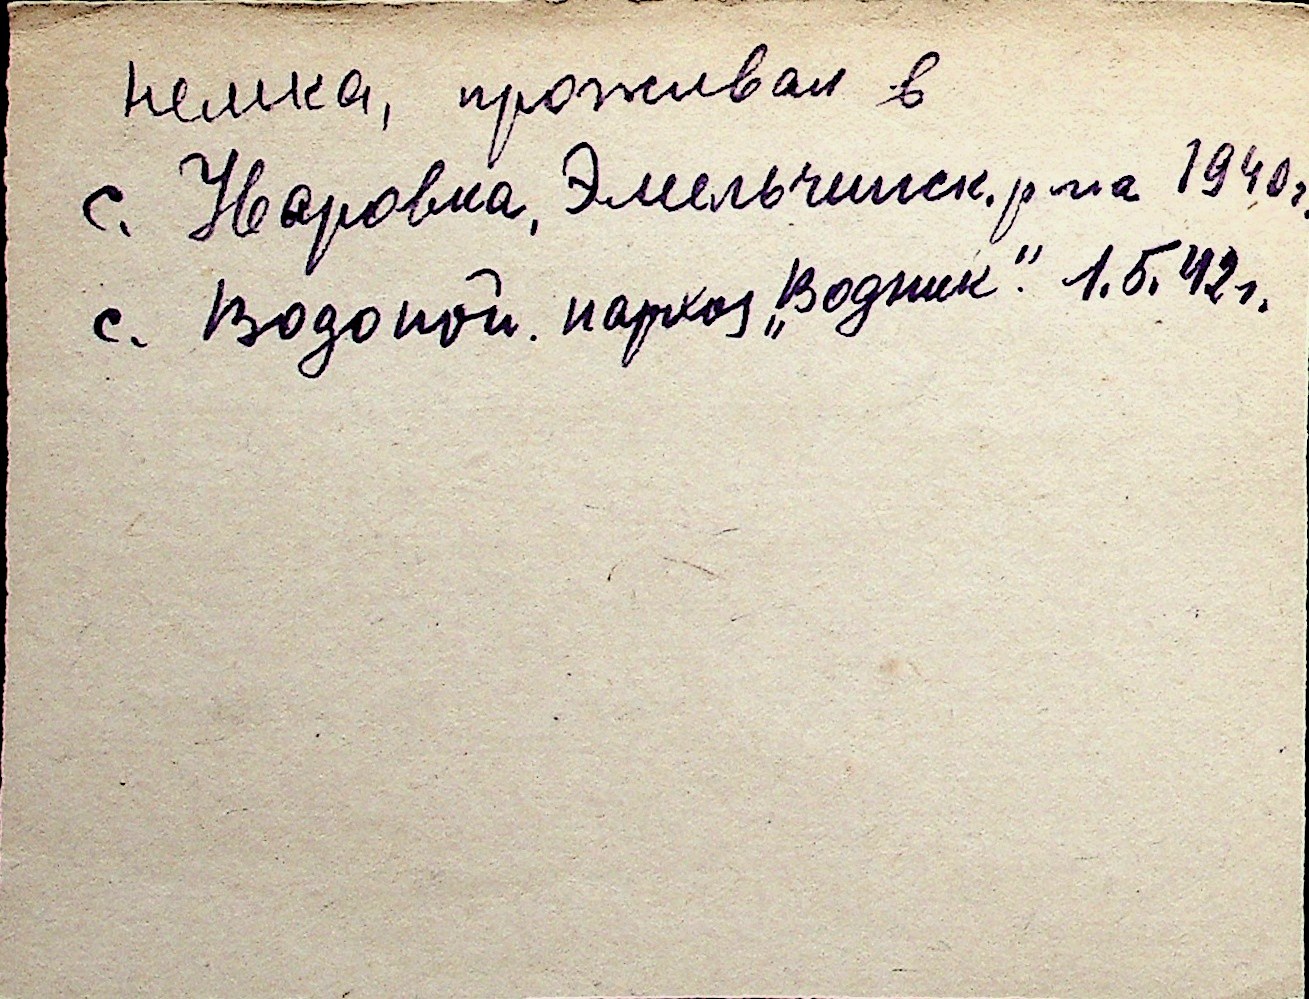 немка, проживал в
с. Наровка, Эмельчинск. р-на 1940г.
с. Водопой. пархоз „Водник". 1.5.42г.